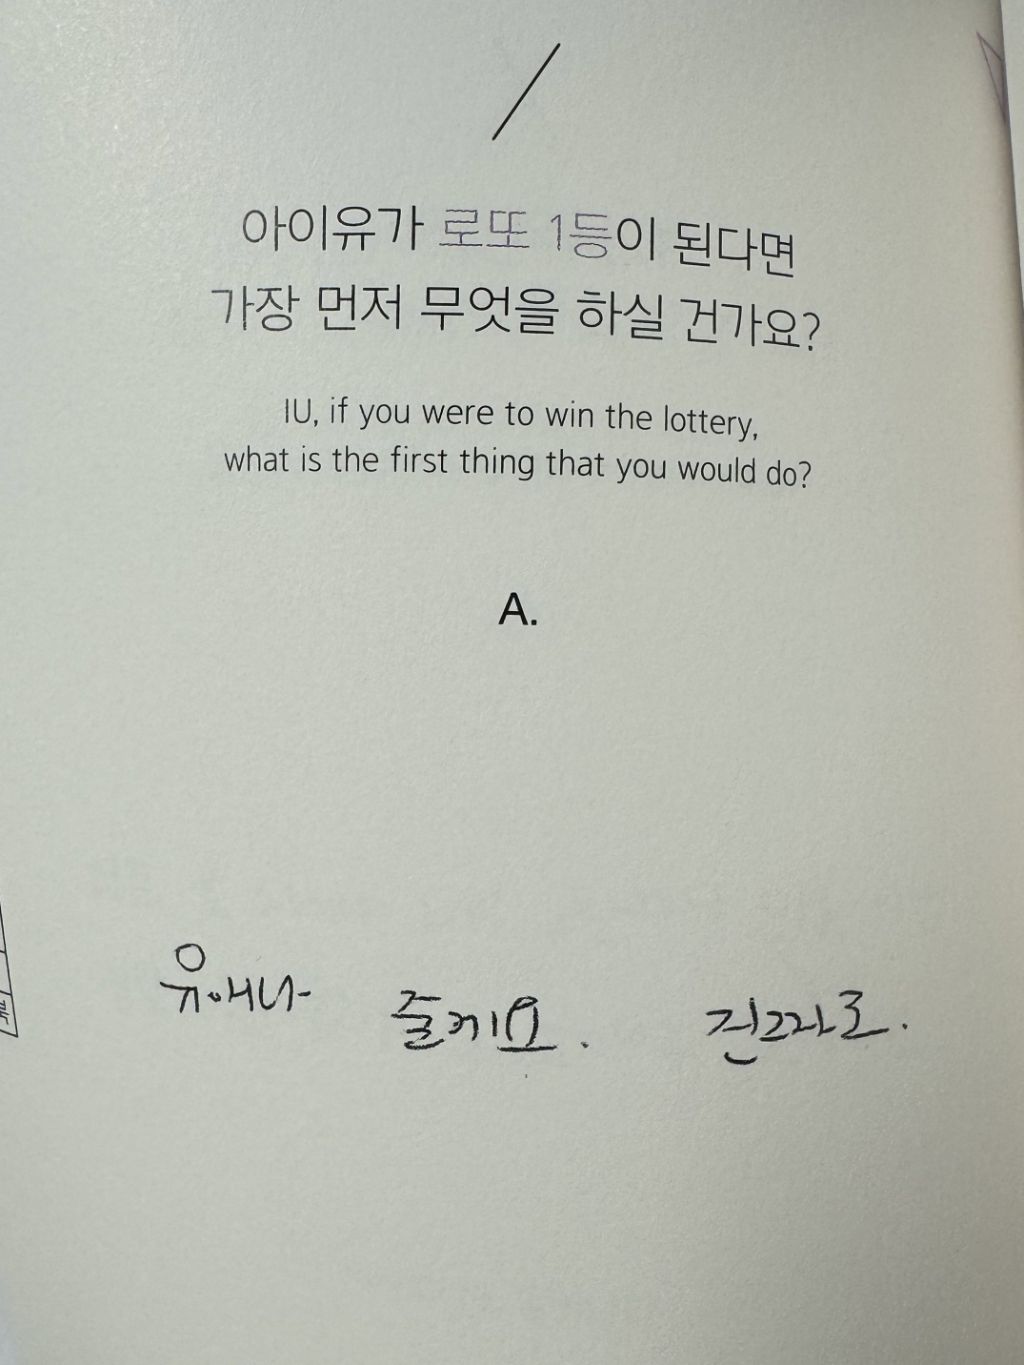 아이유가 로또 1등이 된다면
가장 먼저 무엇을 하실 건가요?
IU, if you were to win the lottery,
what is the first thing that you would do?
A.
유애나 줄게요. 진짜로.